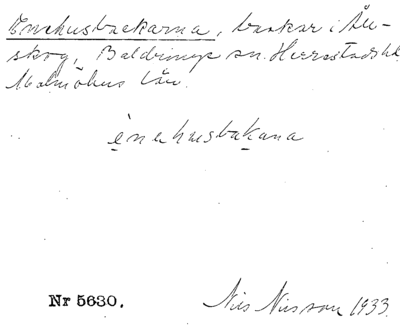 Enehusbackarna, backar i Ån-
skog, Baldringe sn. Herrestads hd.
Malmöhus län.
ènehusbakana
Nr 5630.
Nils Nilsson 1933.